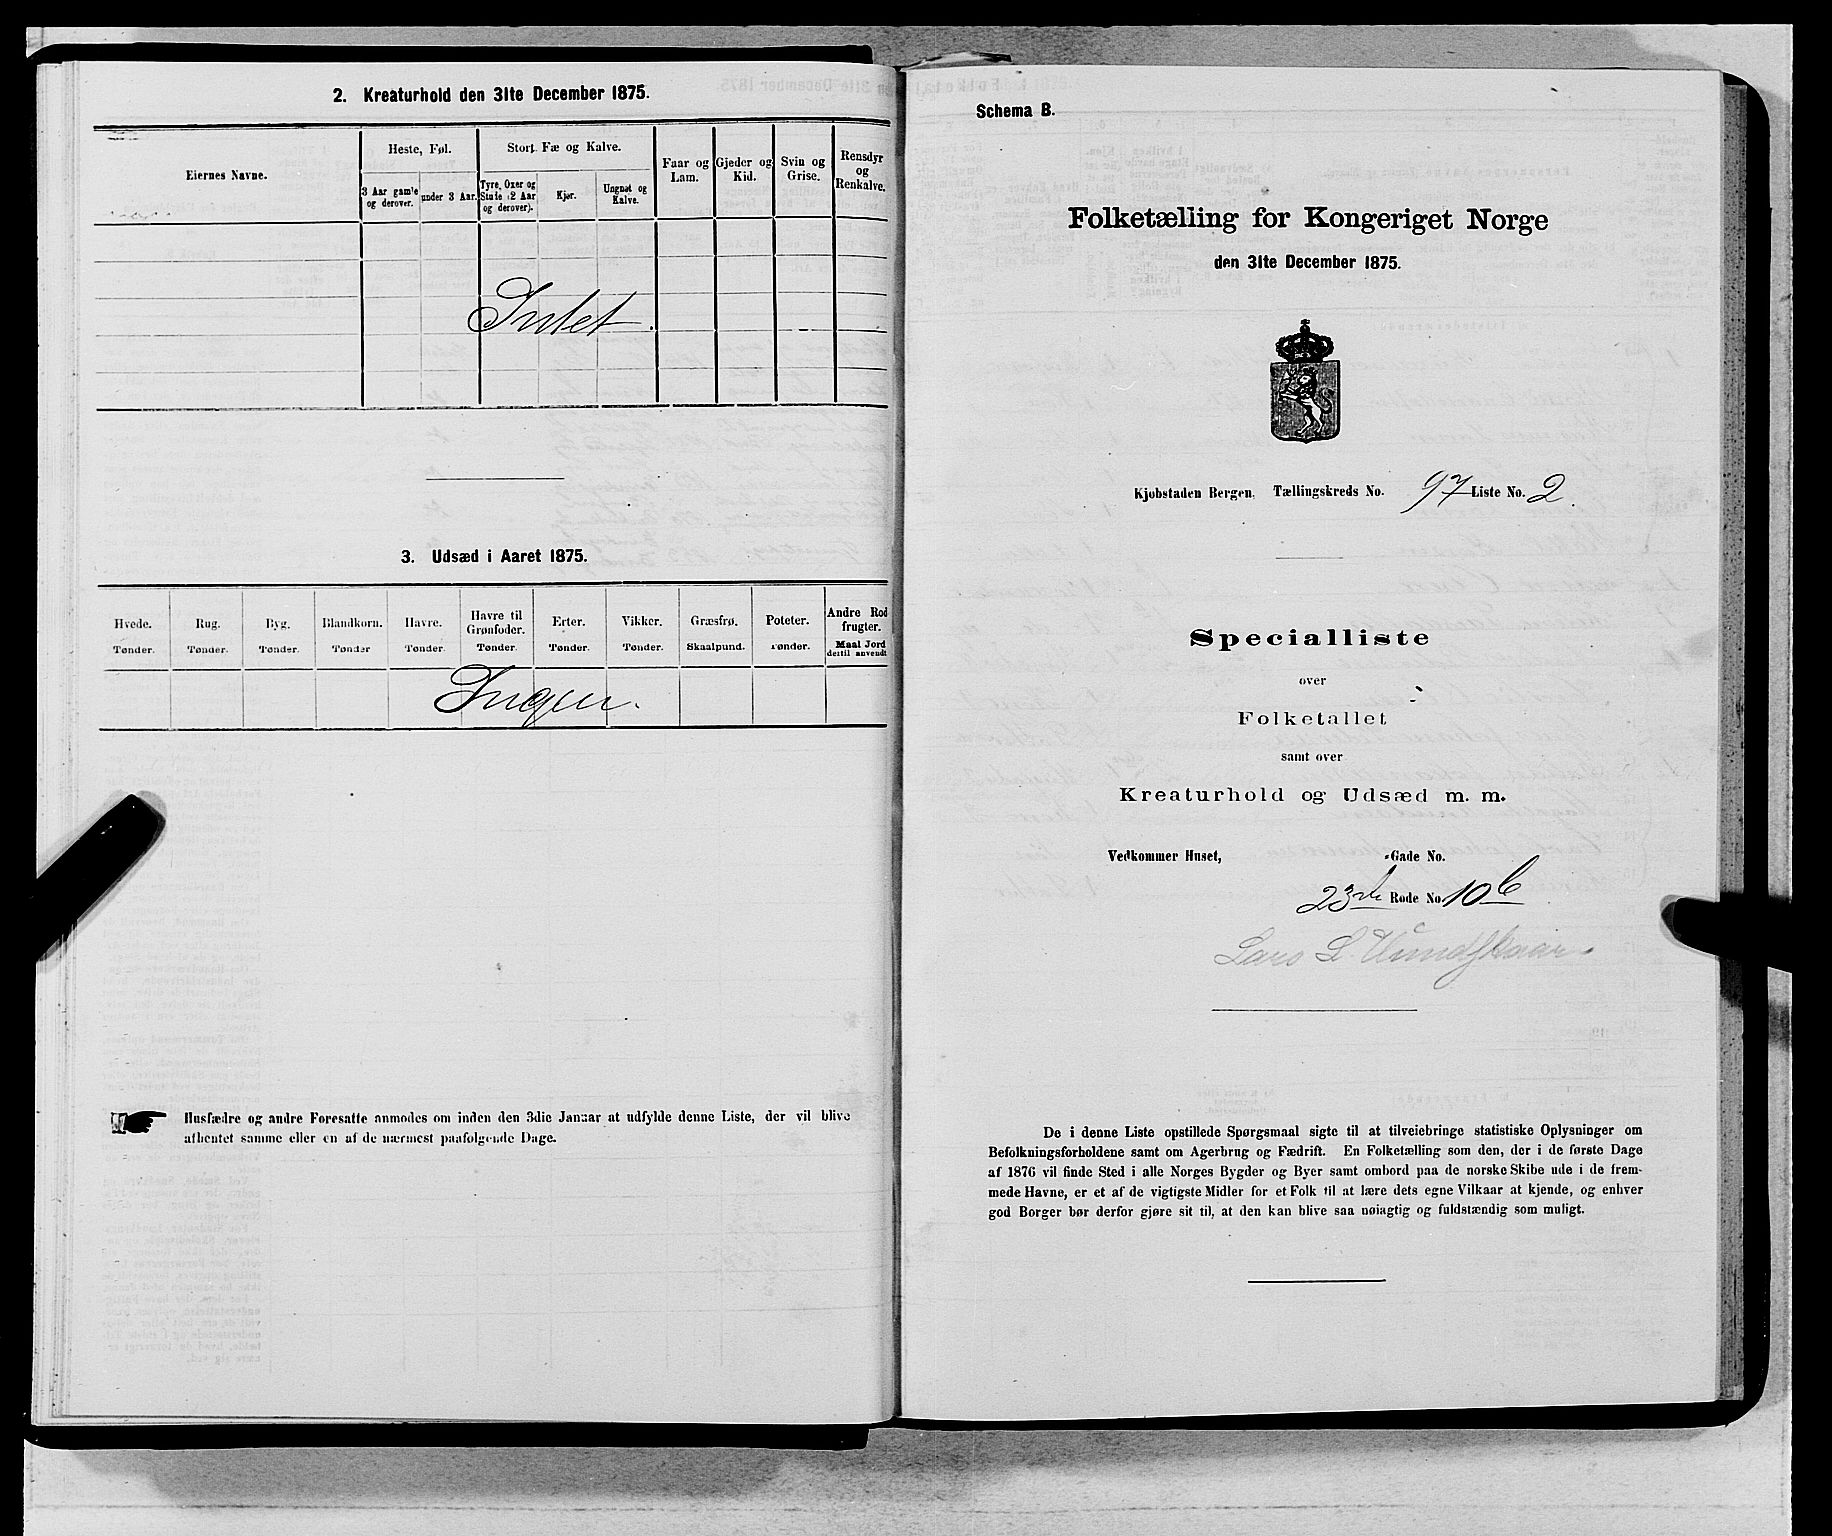 2. Kreaturhold den 31te December 1875.
Eiernes Navne.
Heste, Føl.
Stort Fæ og Kalve.
Faar og Lam.
Gjeder og Kid.
Svin og Grise.
Rensdyr og Renkalve.
3 Aar gamle og derover.
under 3 Aar.
Tyre, Oxer og Stude (2 Aar og derover).
Kjør.
Ungnøt og Kalve.
Intet.
3. Udsæd i Aaret 1875.
Hvede. Rug. Byg. Blandkorn. Havre. Havre til Grønfoder. Erter. Vikker. Græsfrø. Poteter. Andre Rod frugter.
Tønder. Tønder. Tønder. Tønder Tønder. Tønder. Tønder. Tønder. Skaalpund. Tønder. Maal Jord dertil anvendt
Ingen.
Husfædre og andre Foresatte anmodes om inden den 3die Januar at udfylde denne Liste, der vil blive
afhentet samme eller en af de nærmest paafølgende Dage.
Schema B.
Folketælling for Kongeriget Norge
den 31te December 1875.
Kjøbstaden Bergen. Tællingskreds No. 97 Liste No. 2.
Specialliste
over
Folketallet
samt over
Kreaturhold og Udsæd m. m.
Vedkommer Huset, -Gade No.
23de Rode No. 10b
Lars L.
De i denne Liste opstillede Spørgsmaal sigte til at tilveiebringe statistiske Oplysninger om
Befolkningsforholdene samt om Agerbrug og Fædrift. En Folketælling som den, der i de første Dage
af 1876 vil finde Sted i alle Norges Bygder og Byer samt ombord paa de norske Skibe ude i de frem-
mede Havne, er et af de vigtigste Midler for et Folk til at lære dets egne Vilkaar at kjende, og enhver
god Borger bør derfor gjøre sit til, at den kan blive saa nøiagtig og fuldstændig som muligt.